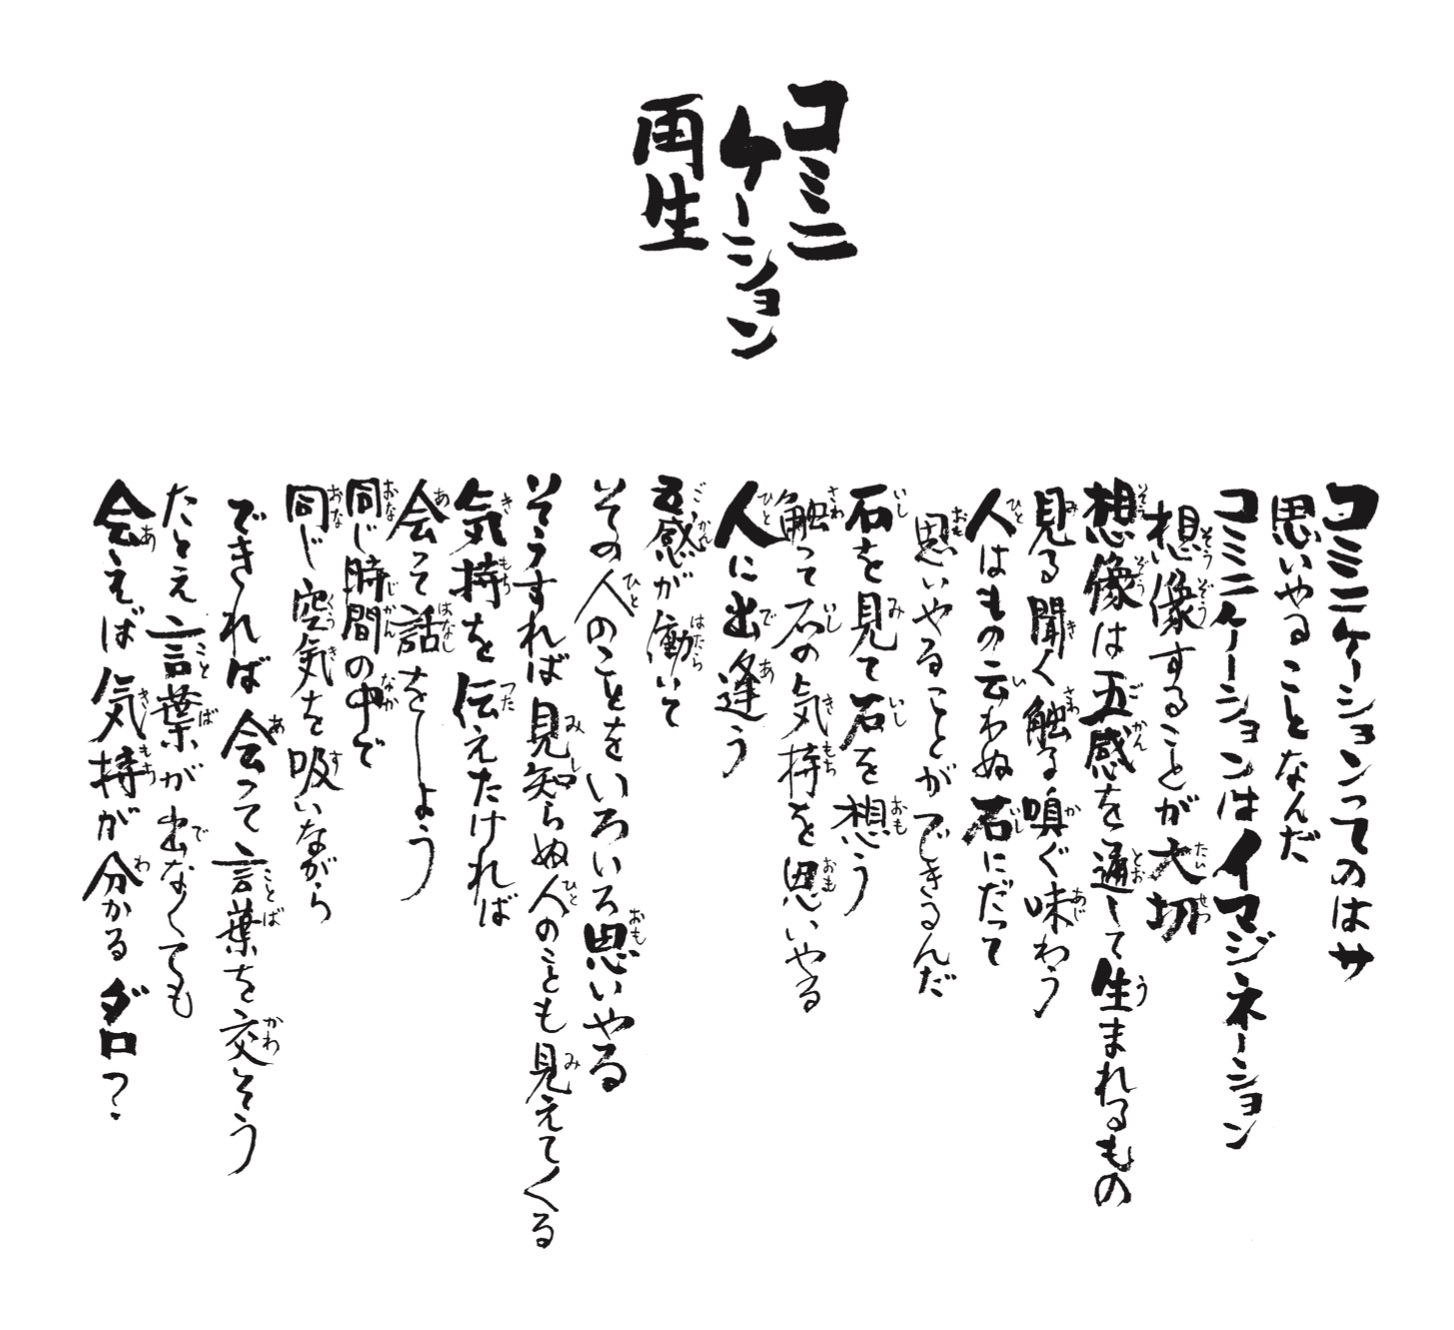 コミニ
ケーション
再生
コミニケーションってのはサ
思いやることなんだ
コミニケーションはイマジネーション
想像することが大切
想像は五感を通して生まれるもの
見る聞く触る嗅ぐ味わう
人はもの云わぬ石にだって
思いやることができるんだ
石を見て石を想う
触って石の気持を思いやる
人に出逢う
五感が働いて
その人のことをいろいろ思いやる
そうすれば見知らぬ人のことも見えてくる
気持を伝えたければ
会って話をしよう
同じ時間の中で
同じ空気を吸いながら
できれば会って言葉を交そう
たとえ言葉が出なくても
会えば気持が分かるダロ？